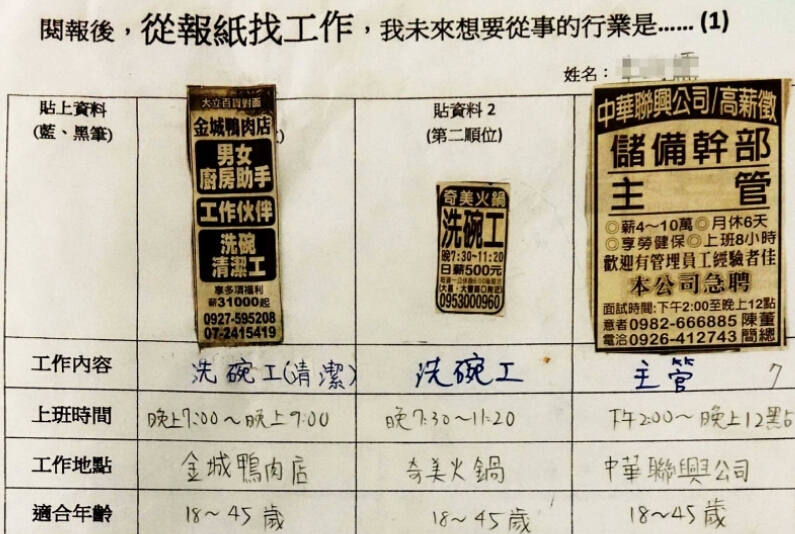 閱報後，從報紙找工作，我未來想要從事的行業是……(1)
姓名：
貼上資料
(藍、黑筆)
大立百貨對面
金城鴨肉店
男女
廚房助手
工作伙伴
洗碗
清潔工
享多項福利
薪31000起
0927-595208
07-2415419
貼資料 2
(第二順位)
奇美火鍋
洗碗工
晚7:30~11:20
日薪500元
0953000960
中華聯興公司/高薪徵
儲備幹部
主管
◎薪4~10萬◎月休6天
◎享勞健保◎上班8小時
歡迎有管理員工經驗者佳
本公司急聘
面試時間:下午2:00至晚上12點
意者0982-666885陳董
電洽0926-412743簡總
工作內容 洗碗工(清潔) 洗碗工 主管 7
上班時間 晚上7:00～晚上9:00 晚7:30～11:20 下午2:00～晚上12點
工作地點 金城鴨肉店 奇美火鍋 中華聯興公司
適合年齡 18～45歲 18～45歲 18～45歲